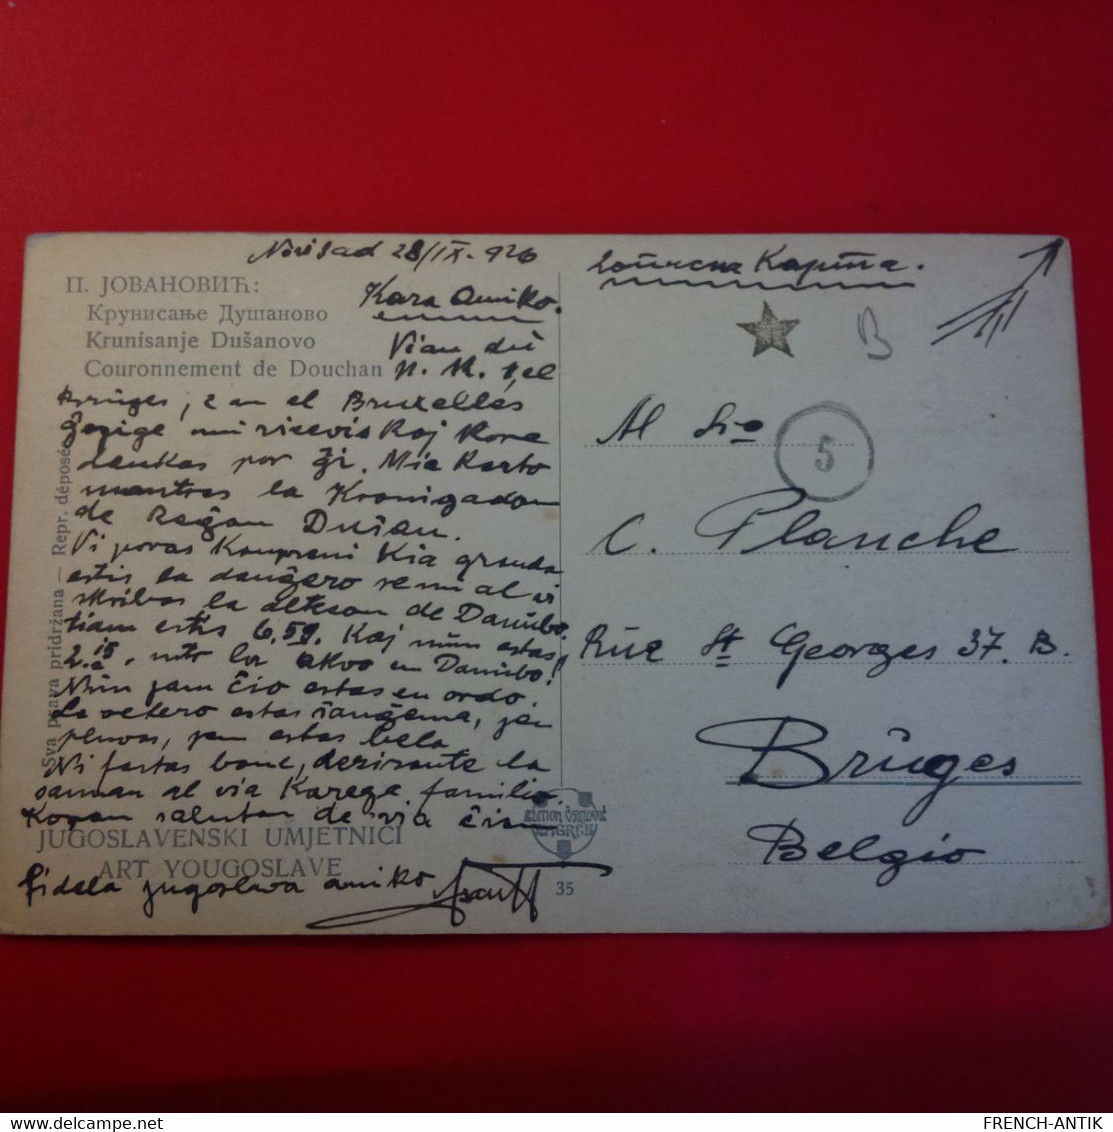 Novisad 28/IX. 926
П. ЈОВАНОВИЋ:
Крунисање Душаново
Krunisanje Dušanovo
Couronnement de Douchan
Kara Amiko.
Vian
Bruges, 2 an el Bruxelles
mi ricevis kaj kore
dankas por ĝi. Mia karto
montras la Kronigadon
de Reĝon Dušan.
Vi povas kompreni kia granda
estis la danĝero se mi al vi
skribas la altecon de Danubo.
tiam estis 6.59. Kaj nun estas
2.15. mtr la akvo en Danubo!
Nun jam ĉio estas en ordo.
La vetero estas ŝanĝema, jen
pluvas, jen estas bela.
Ni fartas bone, dezirante la
saman al via Karega familio.
Koran saluton de via ĉiam
fidela jugoslava amiko
Sva prava pridržana — Repr. déposé
JUGOSLAVENSKI UMJETNICI
ART YOUGOSLAVE
EDITION ČAKLOVIĆ
ZAGREB
35
Карта.
B
5
Al S-ro
C. Planche
Rue St Georges 37. B.
Bruges
Belgio
FRENCH-ANTIK